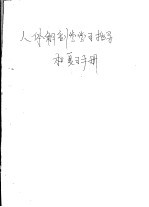 人体解剖学学习指导
和复习手册